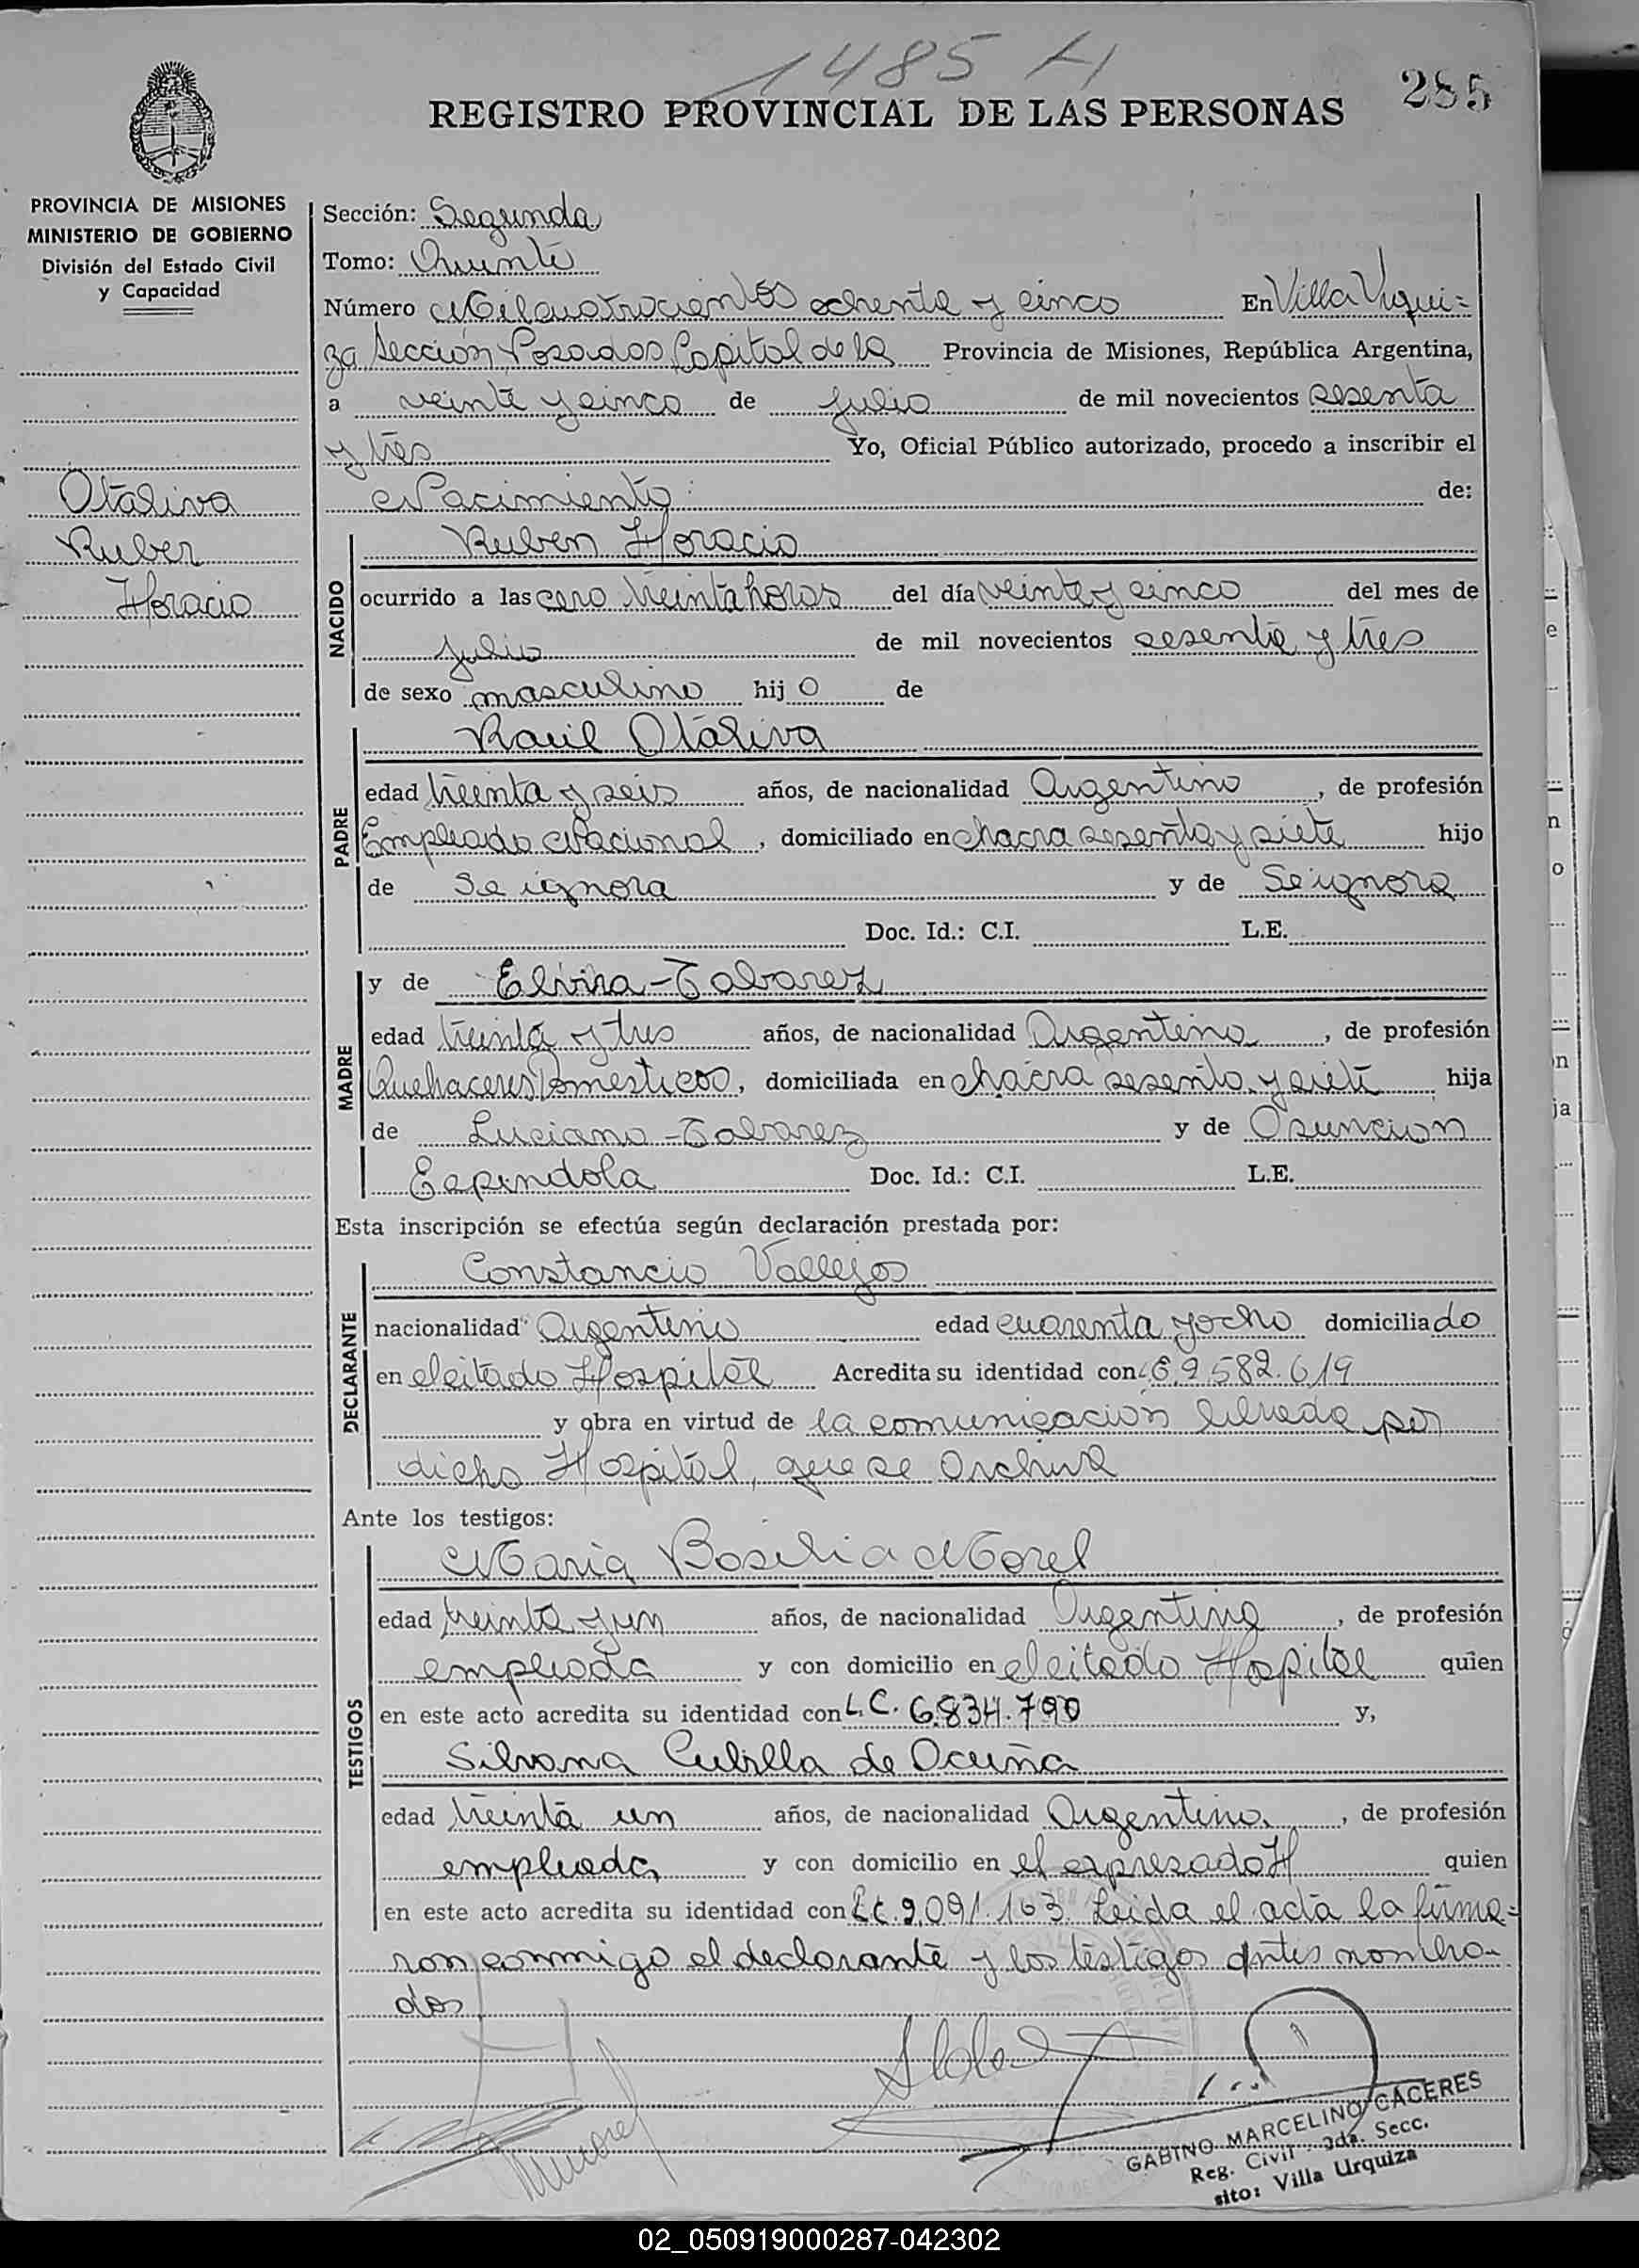 1485 H
285
REGISTRO PROVINCIAL DE LAS PERSONAS
PROVINCIA DE MISIONES
MINISTERIO DE GOBIERNO
División del Estado Civil
y Capacidad
Otaliva
Ruben
Horacio
Sección: Segunda
Tomo: Quinto
Número Milcuatrocientos ochenta y cinco En Villa Urqui=
za Sección Posadas Capital de la Provincia de Misiones, República Argentina,
a veinte y cinco de julio de mil novecientos sesenta
y tres Yo, Oficial Público autorizado, procedo a inscribir el
Nacimiento: de:
NACIDO
Ruben Horacio
ocurrido a las cero treinta horas del día veinte y cinco del mes de
julio de mil novecientos sesenta y tres
de sexo masculino hijo de
PADRE
Raúl Otaliva
edad treinta y seis años, de nacionalidad Argentino, de profesión
Empleado Nacional, domiciliado en chacra sesenta y siete hijo
de Se ignora y de Se ignora
Doc. Id.: C.I. L.E.
MADRE
y de Elvira - Tabarez
edad treinta y tres años, de nacionalidad Argentina, de profesión
Quehaceres Domesticos, domiciliada en chacra sesenta y siete hija
de Luciano - Tabarez y de Asuncion
Espindola Doc. Id.: C.I. L.E.
Esta inscripción se efectúa según declaración prestada por:
DECLARANTE
Constancio Vallejos
nacionalidad Argentino edad cuarenta y ocho domiciliado
en el citado Hospital Acredita su identidad con 2.582.619
y obra en virtud de la comunicacion librada por
dicho Hospital, que se Archiva
Ante los testigos:
TESTIGOS
Maria Basilia Morel
edad treinta y un años, de nacionalidad Argentina, de profesión
empleada y con domicilio en el citado Hospital quien
en este acto acredita su identidad con L.C. 6.834.790 y,
Silvana Cubilla de Acuña
edad treinta un años, de nacionalidad Argentina, de profesión
empleada y con domicilio en el expresado H quien
en este acto acredita su identidad con L.C. 9.091.163. Leida el acta la firma=
ron conmigo el declarante y los testigos antes nombra-
dos
GABINO MARCELINO CACERES
Reg. Civil - 2da. Secc.
sito: Villa Urquiza
02_050919000287-042302